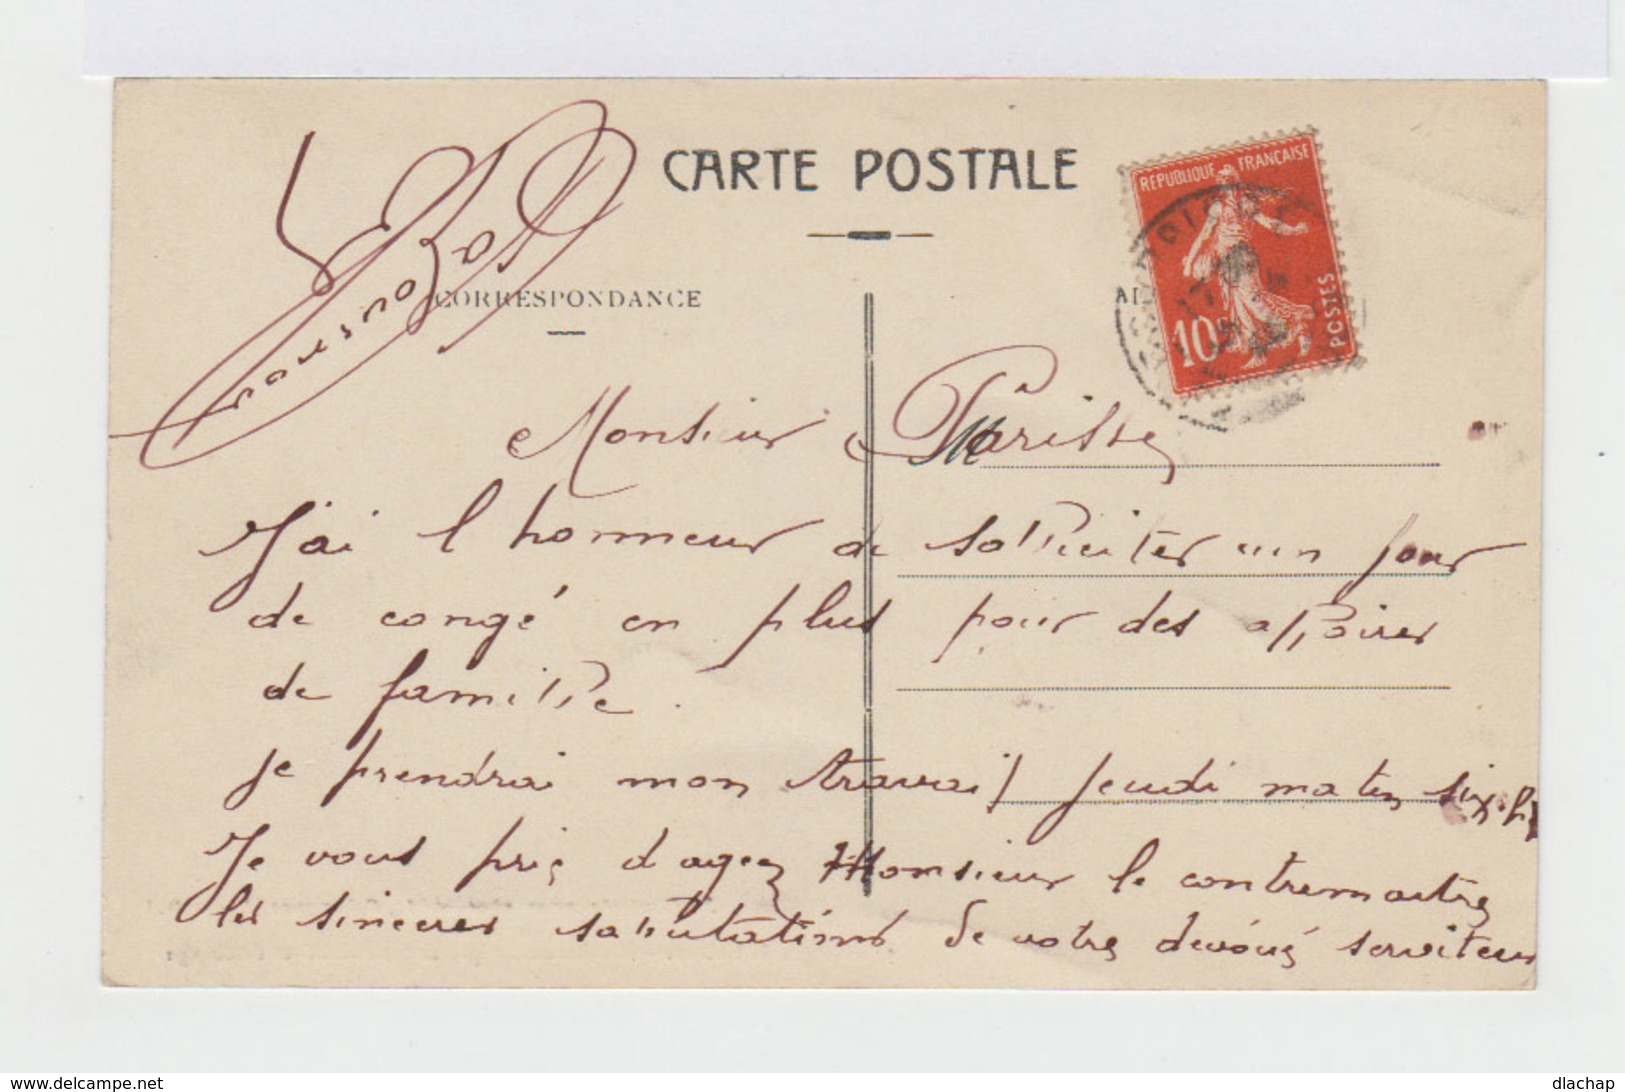 CARTE POSTALE
REPUBLIQUE FRANÇAISE
10c POSTES
CORRESPONDANCE
Monsieur Pârisse
J'ai l honneur de solliciter un jour
de congé en plus pour des affaires
de famille.
je prendrai mon travail jeudi matin six.h
Je vous prie d'agez Monsieur le contremaitre
les sinceres salutations de votre dévoué serviteur
www.delcampe.net
dlachap